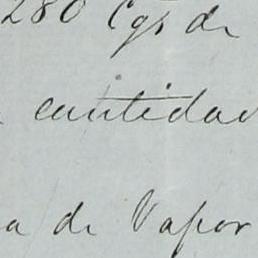 280 Cgs de
cantidad
a de Vapor